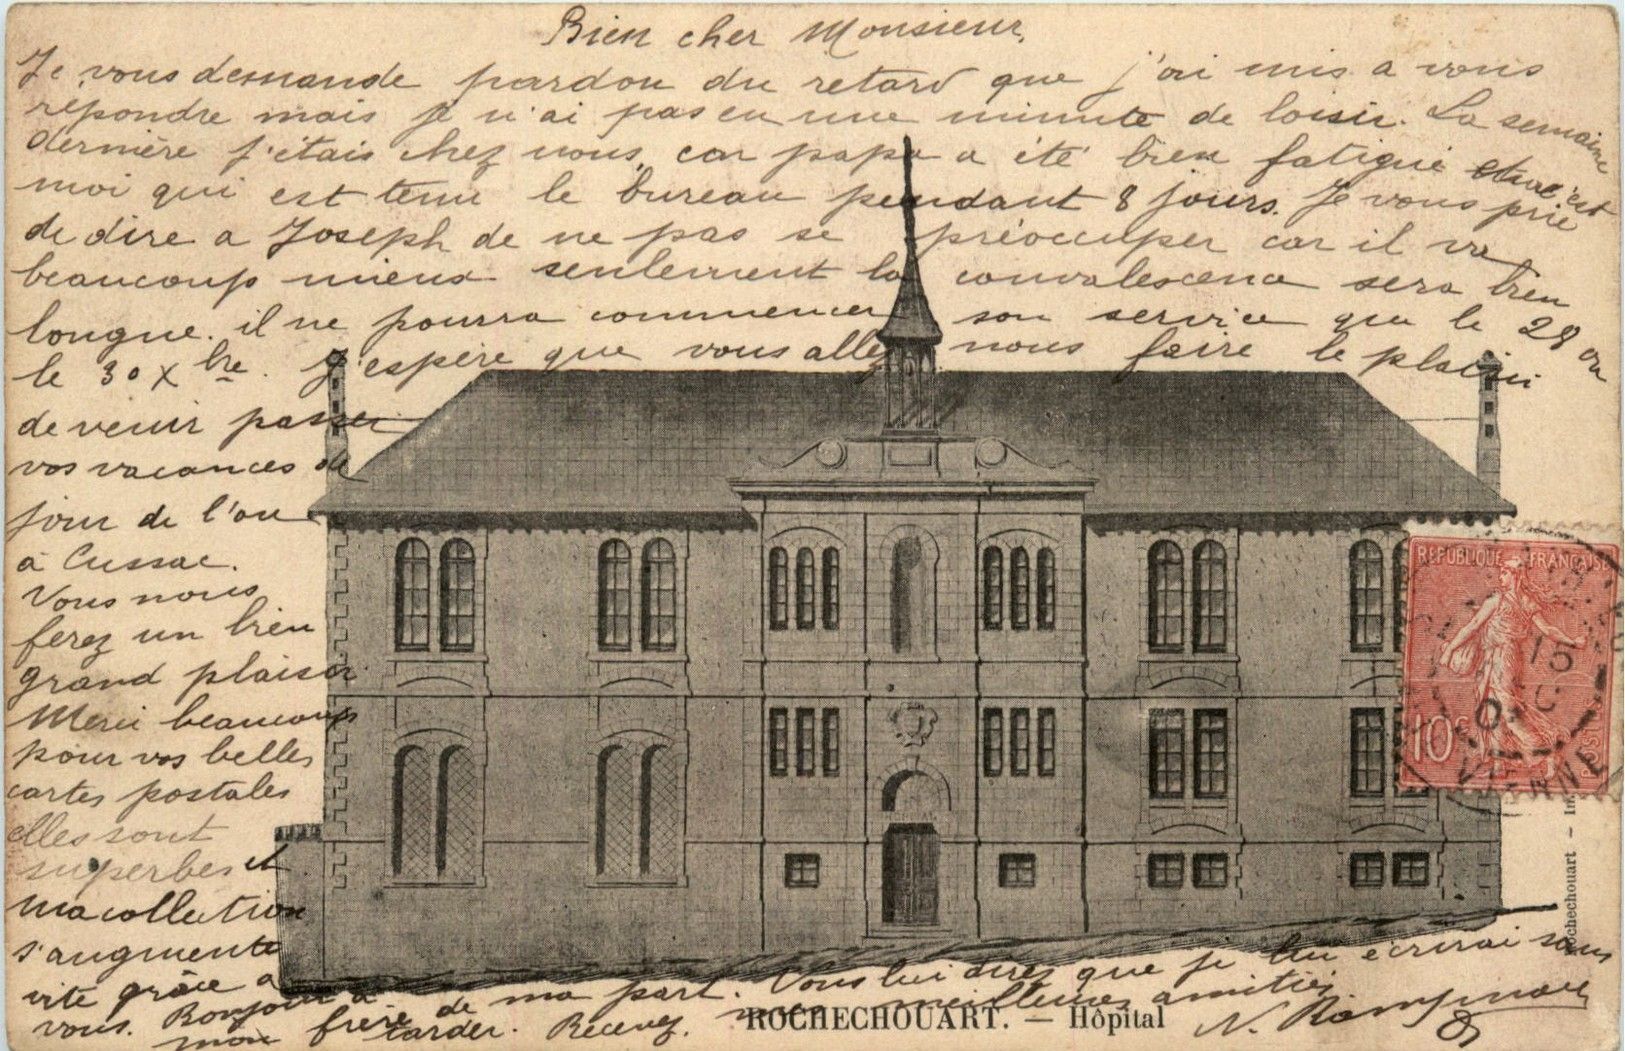 Bien cher Monsieur,
Je vous demande pardon du retard que j'ai mis a vous
répondre mais je n'ai pas eu une minute de loisir. La semaine
dernière j'étais chez nous, car papa a été bien fatigué c'est
moi qui est tenu le bureau pendant 8 jours. Je vous prie
de dire a Joseph de ne pas se préoccuper car il va
beaucoup mieux seulement la convalescence sera bien
longue. il ne pourra commencer son service que le 28 ou
le 30 Xbre. J'espère que vous allez nous faire le plaisir
de venir passer
vos vacances de
jour de l'an
à Cussac.
Vous nous
ferez un bien
grand plaisir
Merci beaucoup
pour vos belles
cartes postales
elles sont
superbes et
ma collection
s'augmente
vite grâce a
vous. Bonjour a
mon frère de ma part. Vous lui direz que je lui écrirai sans
tarder. Recevez, mes meilleures amitiés
N.
RÉPUBLIQUE FRANÇAISE
10c
POSTES
15
VIENNE
Rochechouart – Im
ROCHECHOUART. — Hôpital